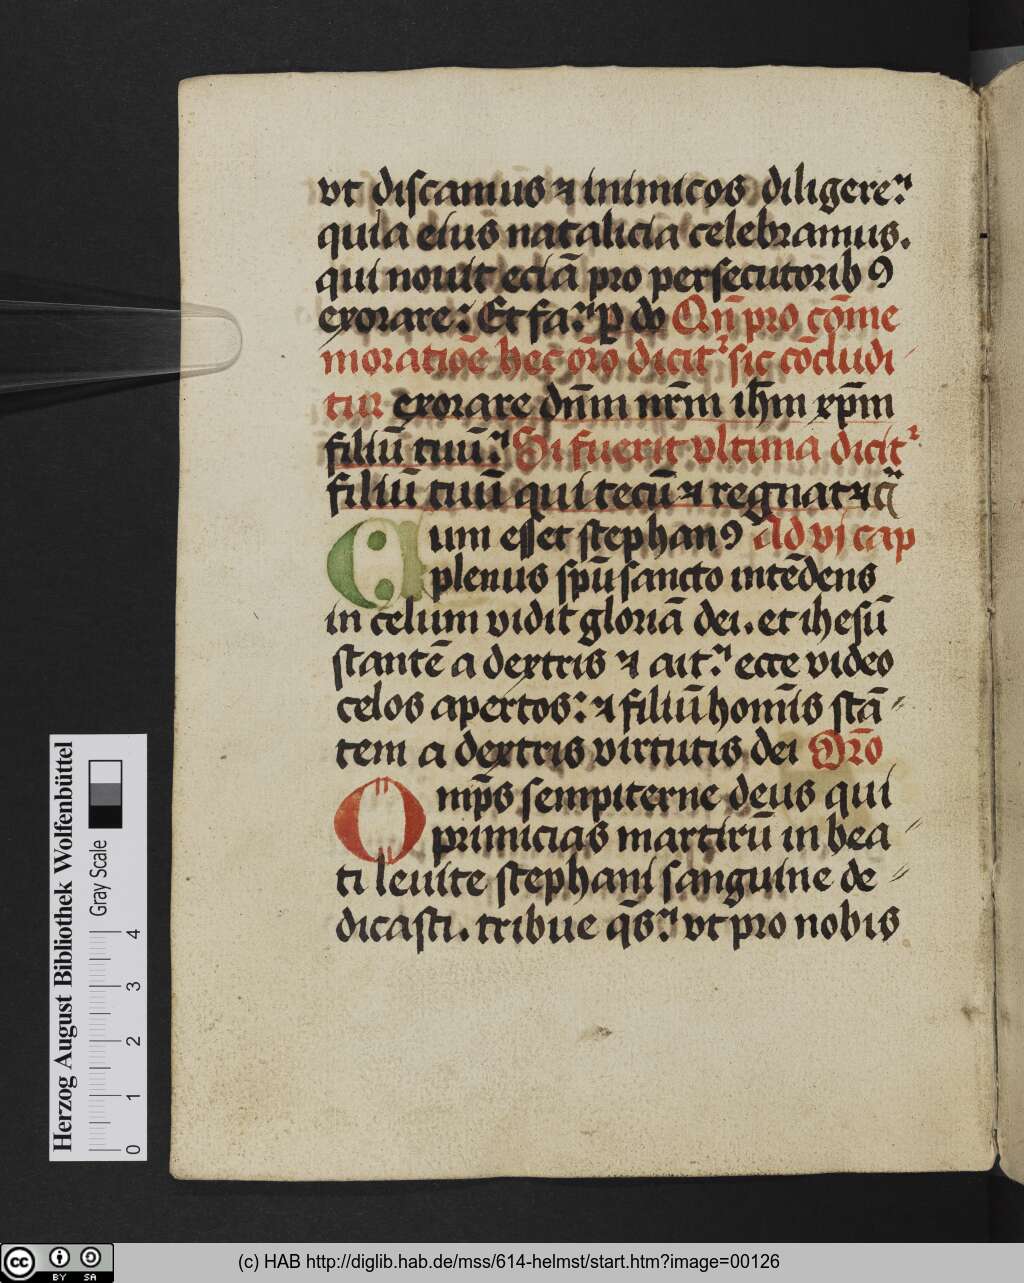 vt discamus ⁊ inimicos diligere:
quia eius natalicia celebramus.
qui nouit eciā pro persecutorib9
exorare: Et fa: ꝑ do Qn̄ pro cōme
moratiōe hec or̄o dicit᷑ sic cōcludi
tur exorare dn̄m nr̄m ih̄m xp̄m
filiū tuū: Si fuerit vltima dicit᷑
filiū tuū qui tecū ⁊ regnat ⁊ c̄
Cum esset stephan9 Ad vi cap
plenus sp̄u sancto intēdens
in celum vidit gloriā dei. et ihesū
stantē a dextris ⁊ ait: ecce video
celos apertos: ⁊ filiū hom̄is stā
tem a dextris virtutis dei Or̄o
Omp̄s sempiterne deus qui
primicias martirū in bea
ti leuite stephani sanguine de
dicasti. tribue q̄s: vt pro nobis
Herzog August Bibliothek Wolfenbüttel
Gray Scale
0 1 2 3 4
cc BY SA
(c) HAB http://diglib.hab.de/mss/614-helmst/start.htm?image=00126